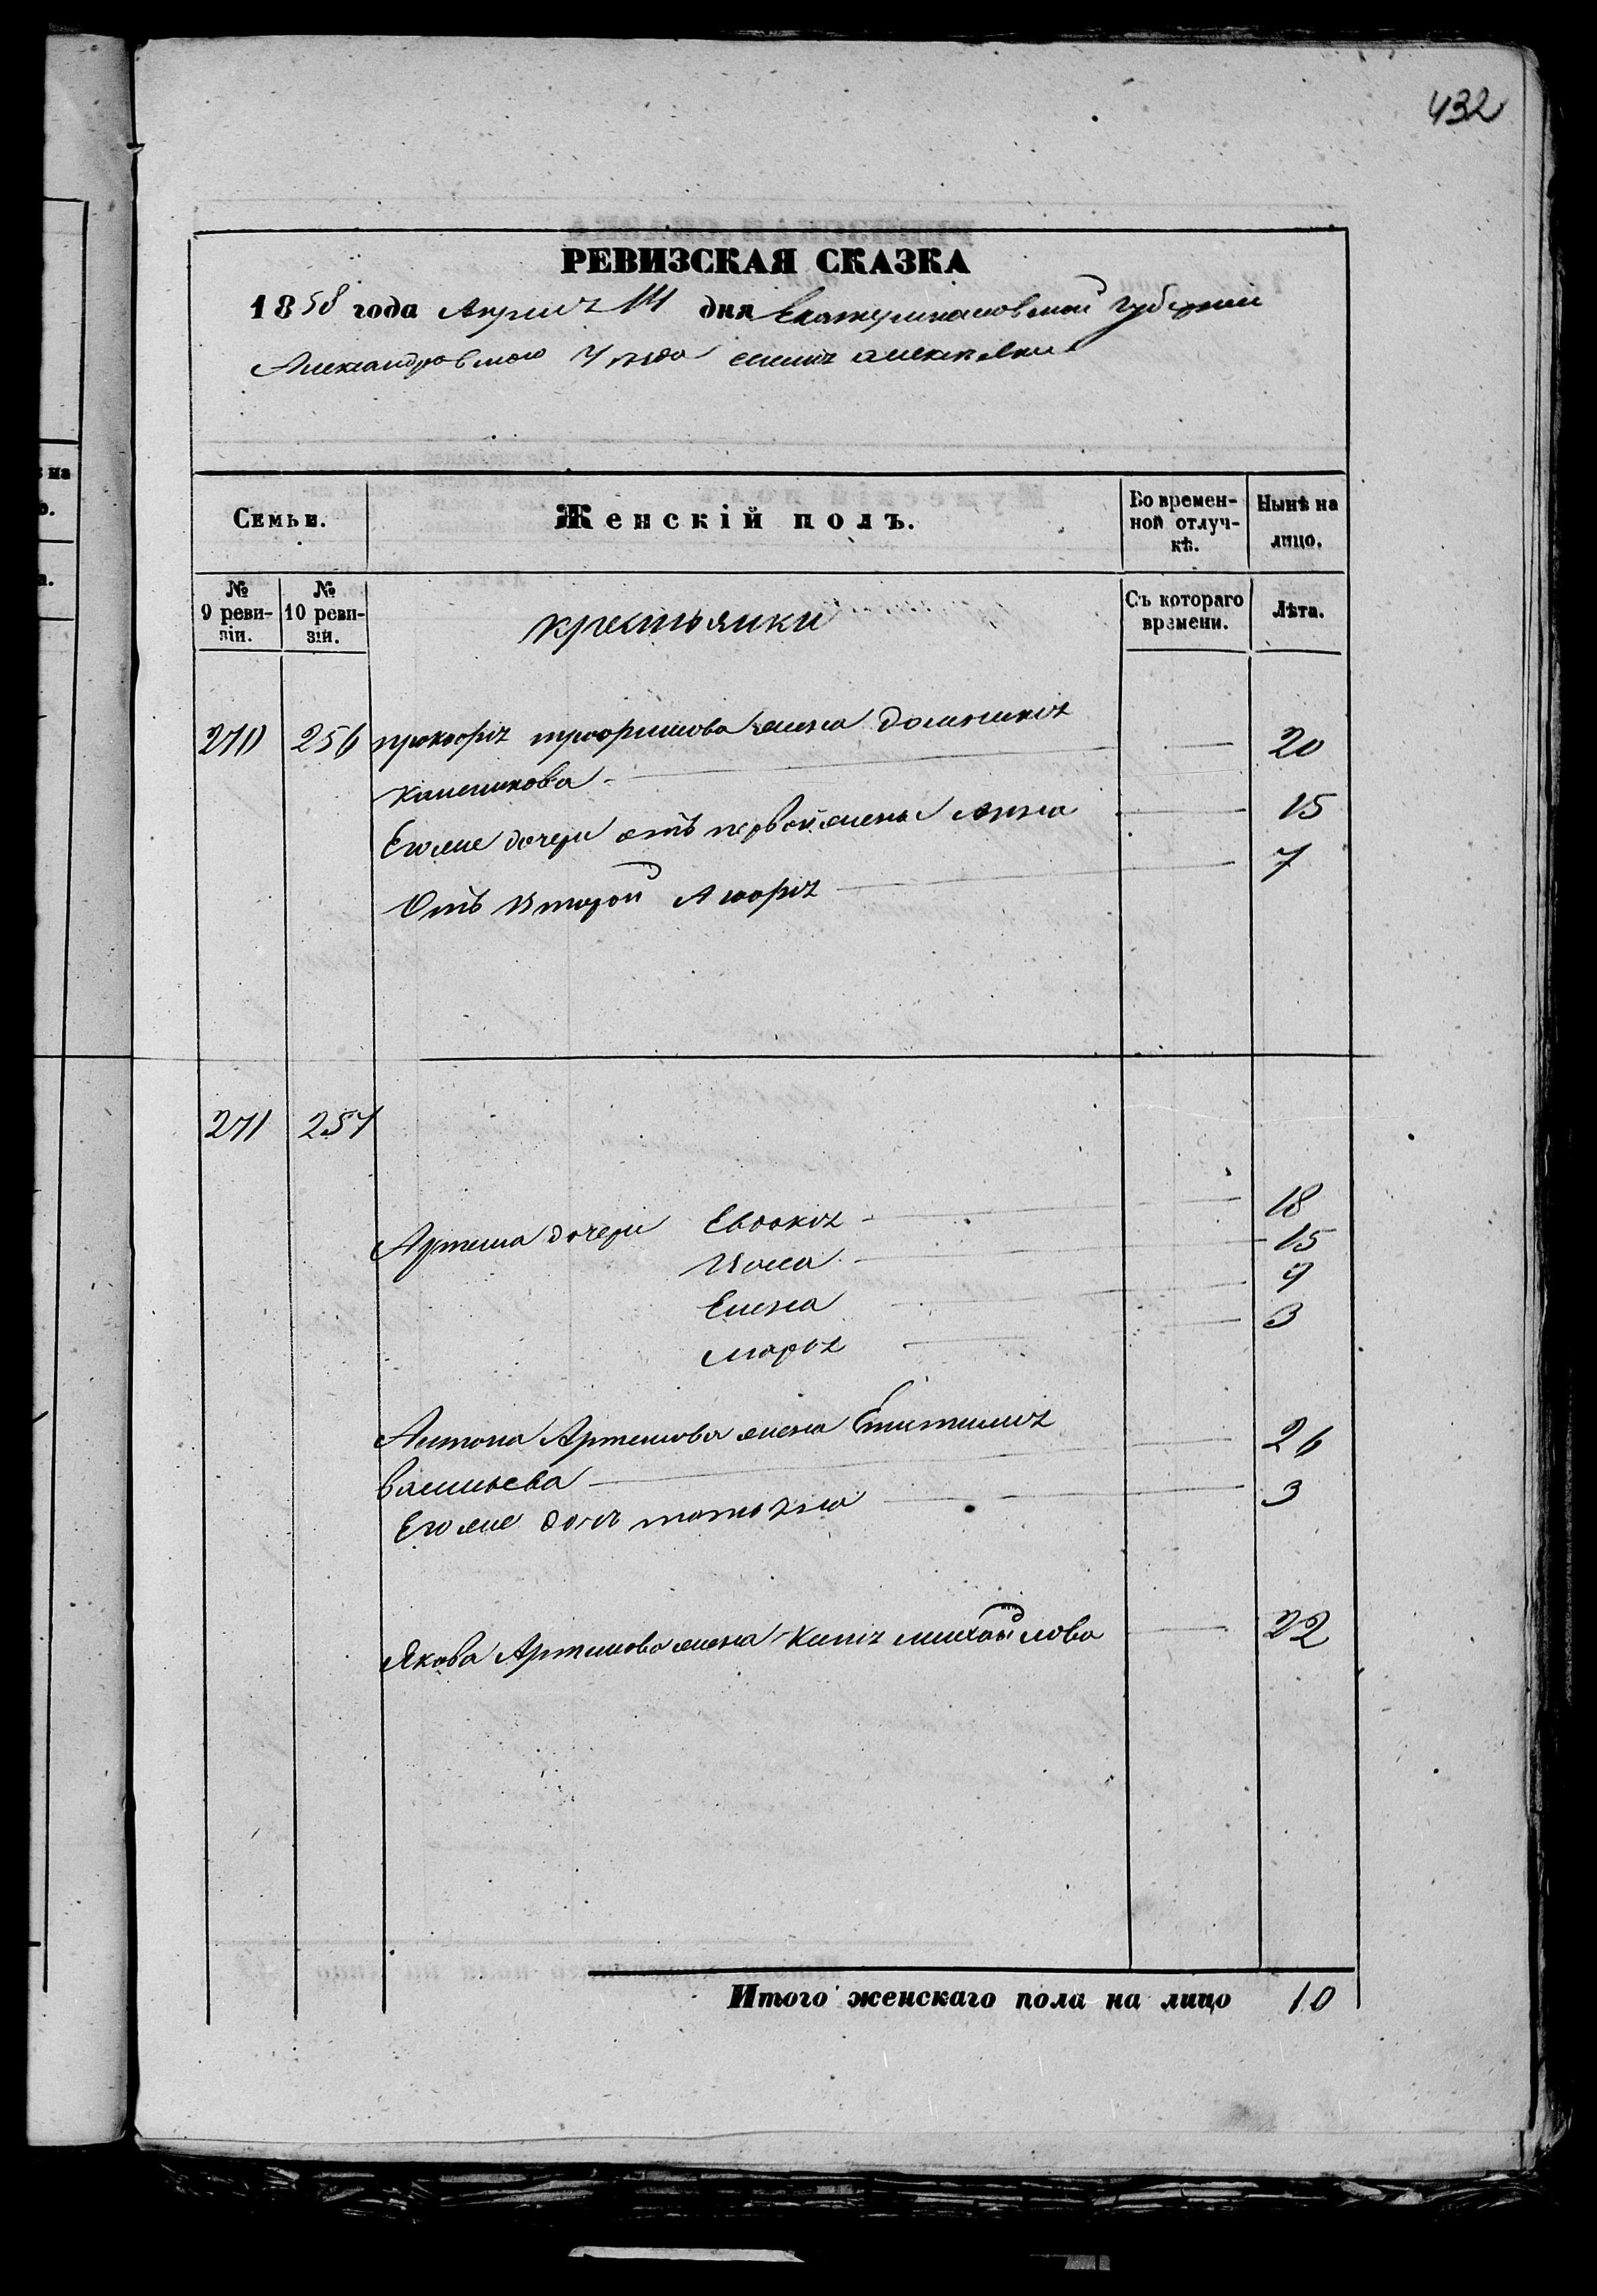 432
РЕВИЗСКАЯ СКАЗКА
1858 года Априля 14 дня Екатеринославской губернии
Александровского Уезда
Семьи.
Женскій полъ.
Во времен-
ной отлуч-
кѣ.
Нынѣ на
лицо.
№
9 реви-
зіи.
№
10 реви-
зій.
крестьянки
Съ котораго
времени.
Лѣта.
270 256 прокофія трофимова жена Домникія
20
Его же дочери отъ первой жены Анна 15
Отъ Второй Агафія 7
271 257
Артема дочери Евдокія 18
15
Елена 9
марія 3
Антона Артемова жена Епистимія
васильева 26
Его же дочь татьяна 3
Якова Артемова жена михайлова 22
Итого женскаго пола на лицо 10